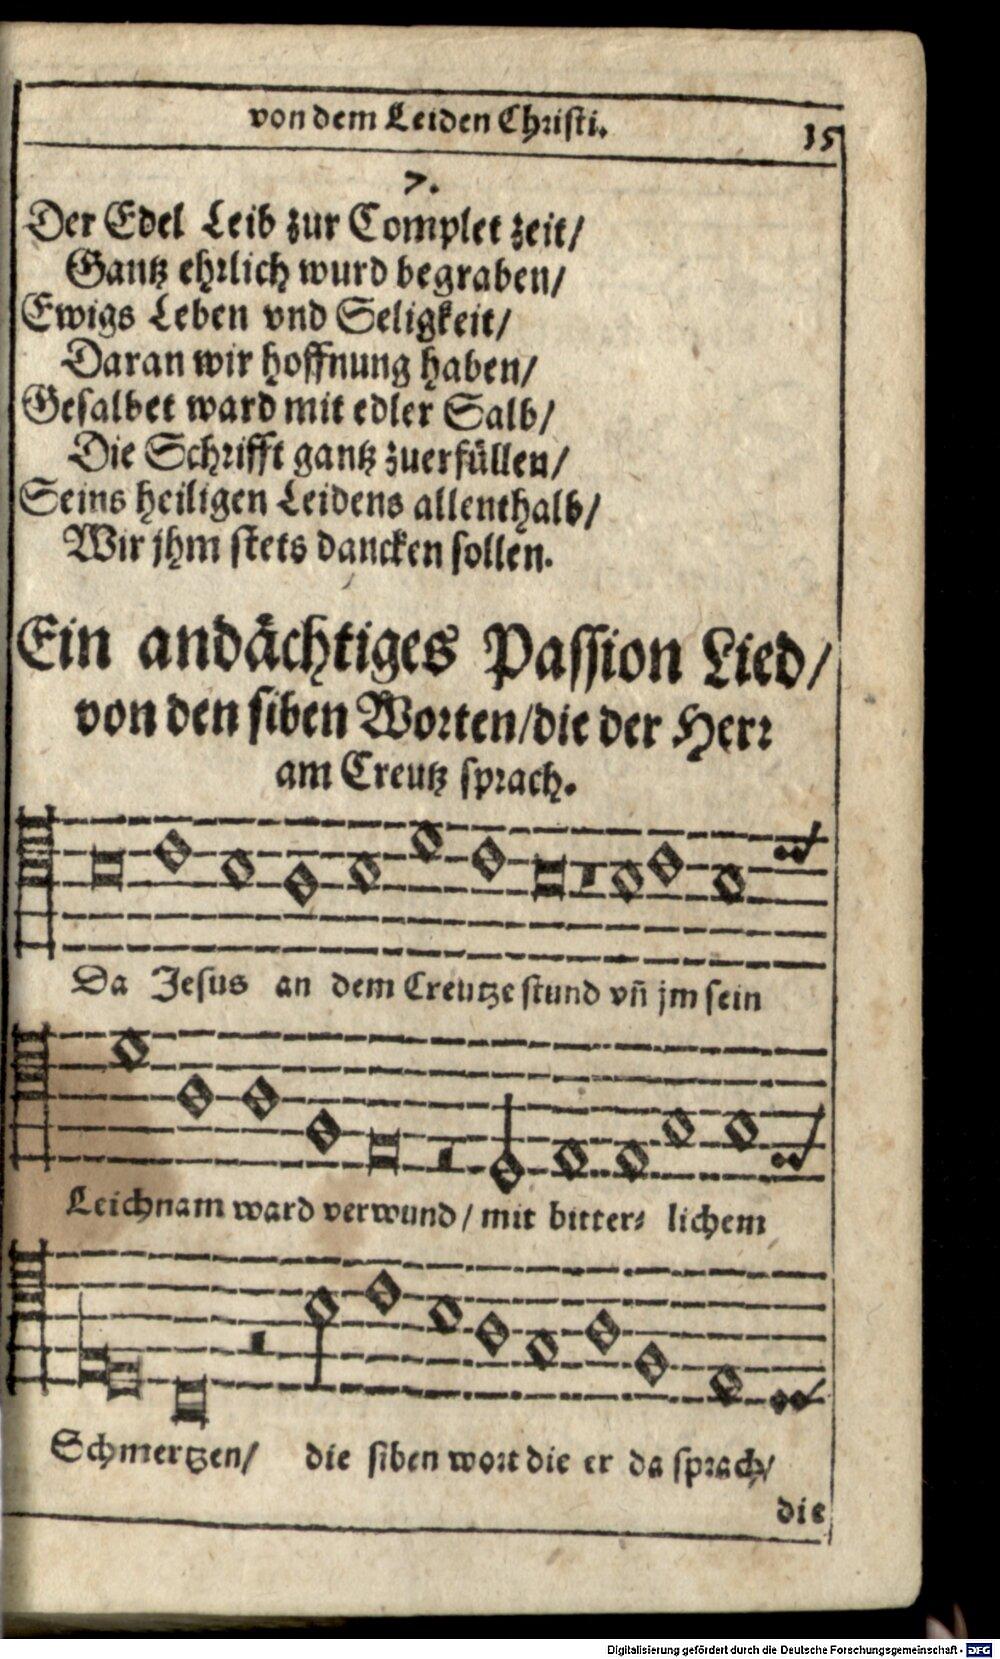 von dem Leiden Christi. 15
7.
Der Edel Leib zur Complet zeit/
Gantz ehrlich wurd begraben/
Ewigs Leben vnd Seligkeit/
Daran wir hoffnung haben/
Gesalbet ward mit edler Salb/
Die Schrifft gantz zuerfüllen/
Seins heiligen Leidens allenthalb/
Wir jhm stets dancken sollen.
Ein andächtiges Passion Lied/
von den siben Worten/die der Herr
am Creutz sprach.
Da Jesus an dem Creutze stund vñ jm sein
Leichnam ward verwund/ mit bitter⸗ lichem
Schmertzen/ die siben wort die er da sprach/
die
Digitalisierung gefördert durch die Deutsche Forschungsgemeinschaft - DFG